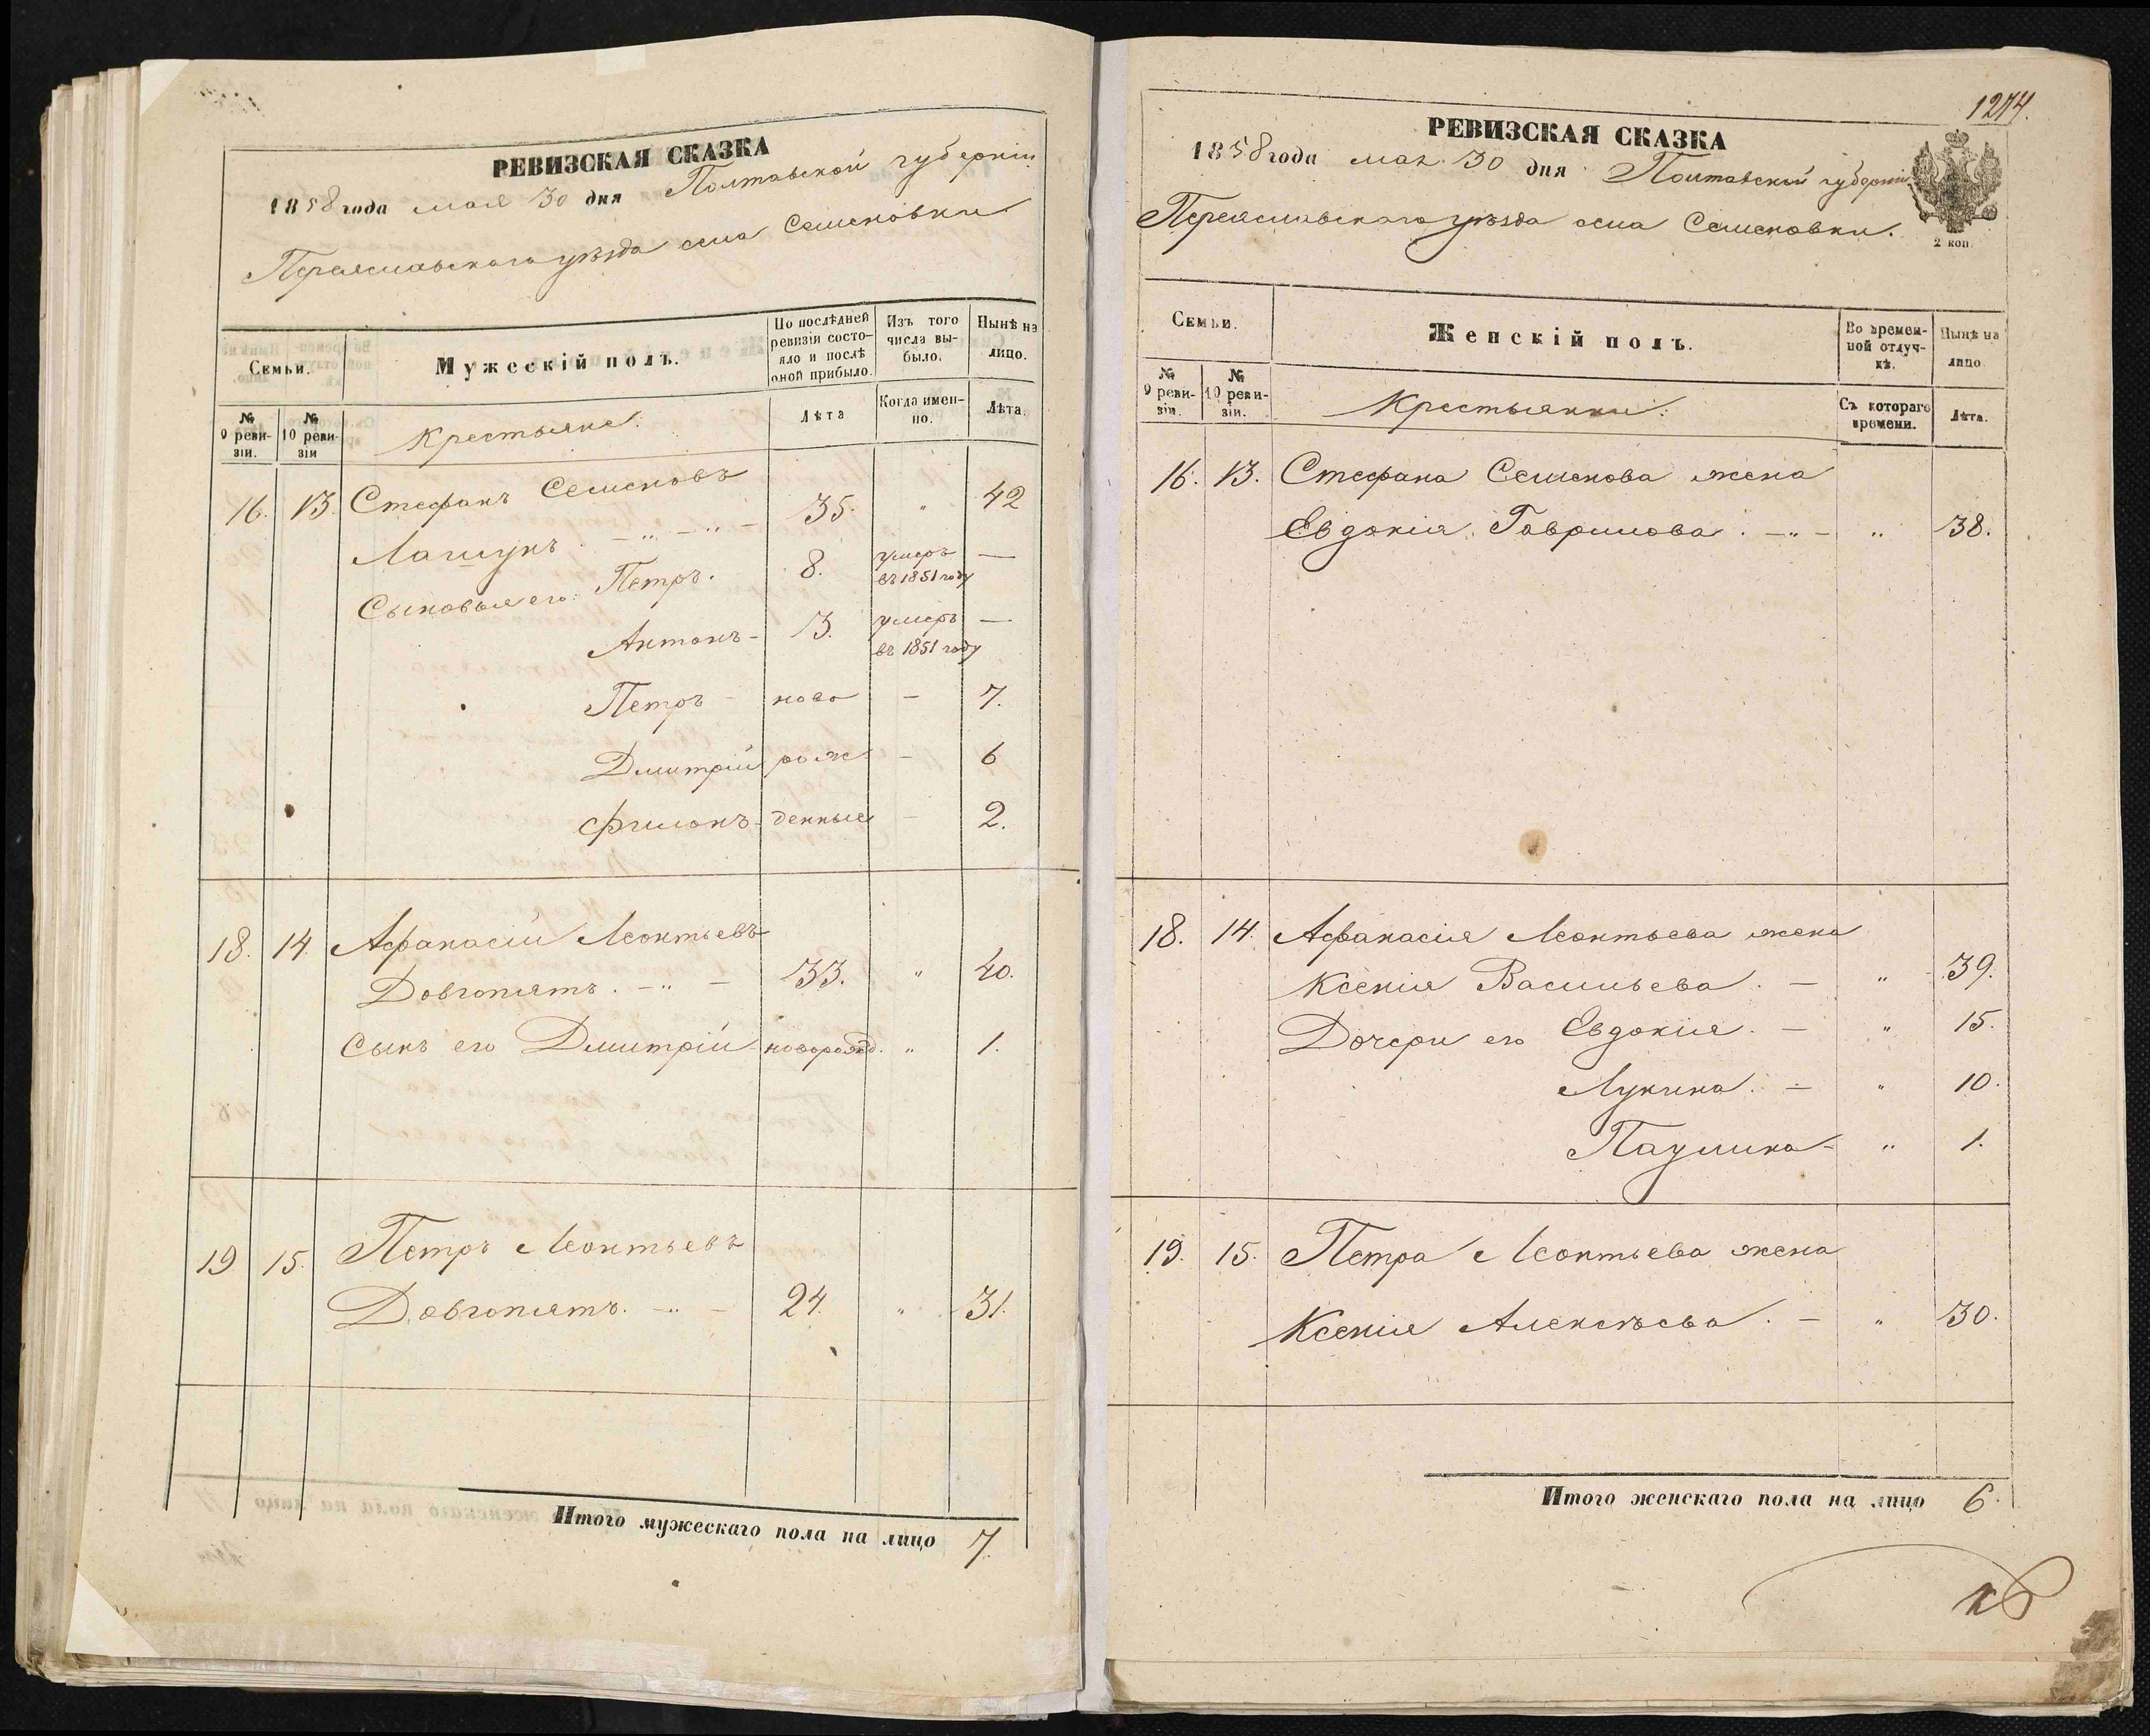 РЕВИЗСКАЯ СКАЗКА
1858 года мая 30 дня Полтавской губерніи
Переяславскаго уѣзда села Семеновки
Семьи.
Мужескій полъ.
По послѣдней ревизіи состояло и послѣ оной прибыло.
Изъ того числа выбыло.
Нынѣ на лицо.
№ 9 ревизіи.
№ 10 ревизіи
Крестьяне:
Лѣта
Когда именно.
Лѣта.
16. 13. Стефанъ Семеновъ
Лагшунъ. — „ — „ — 35. „ 42
Сыновья его: Петръ. 8. умеръ въ 1851 году —
Антонъ - 3. умеръ въ 1851 году —
Петръ - ново — 7.
Дмитрій рож — 6
Филонъ - денные — 2.
18. 14. Афанасій Леонтьевъ
Довгопятъ. — „ — 33. „ 40.
Сынъ его Дмитрій новорожд. „ 1.
19 15. Петръ Леонтьевъ
Довгопятъ. — „ — 24. „ 31.
Итого мужескаго пола на лицо 7.
1274.
РЕВИЗСКАЯ СКАЗКА
1858 года мая 30 дня Полтавской губерніи
Переяславскаго уѣзда села Семеновки.
2 коп.
Семьи.
Женскій полъ.
Во временной отлучкѣ.
Нынѣ на лицо.
№ 9 ревизіи.
№ 10 ревизіи.
Крестьянки:
Съ котораго времени.
Лѣта.
16. 13. Стефана Семенова жена
Евдокія Гаврилова. — „ — „ 38.
18. 14. Афанасія Леонтьева жена
Ксенія Васильева. — „ 39.
Дочери его Евдокія. — „ 15.
Лукина. — „ 10.
Паулина - „ 1.
19. 15. Петра Леонтьева жена
Ксенія Алексѣева. — „ 30.
Итого женскаго пола на лицо 6.